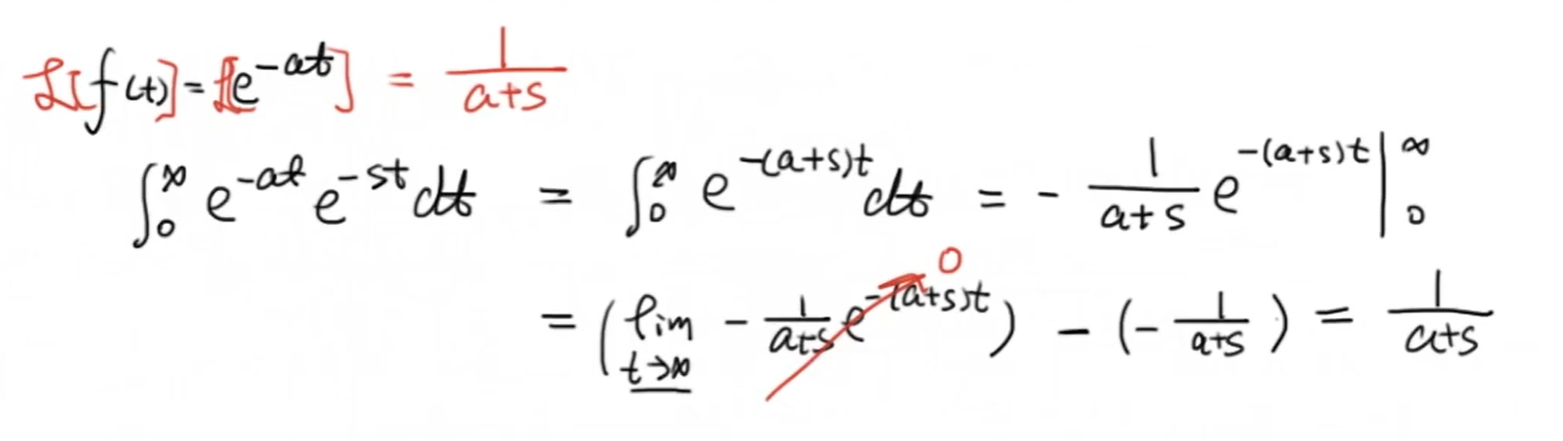 ℒ[f(t)] = ℒ[e^{-at}] = \frac{1}{a+s}
\int_0^∞ e^{-at} e^{-st} dt = \int_0^∞ e^{-(a+s)t} dt = -\frac{1}{a+s} e^{-(a+s)t} |_0^∞
= (\lim_{t→∞} -\frac{1}{a+s} e^{-(a+s)t}) - (-\frac{1}{a+s}) = \frac{1}{a+s}
0